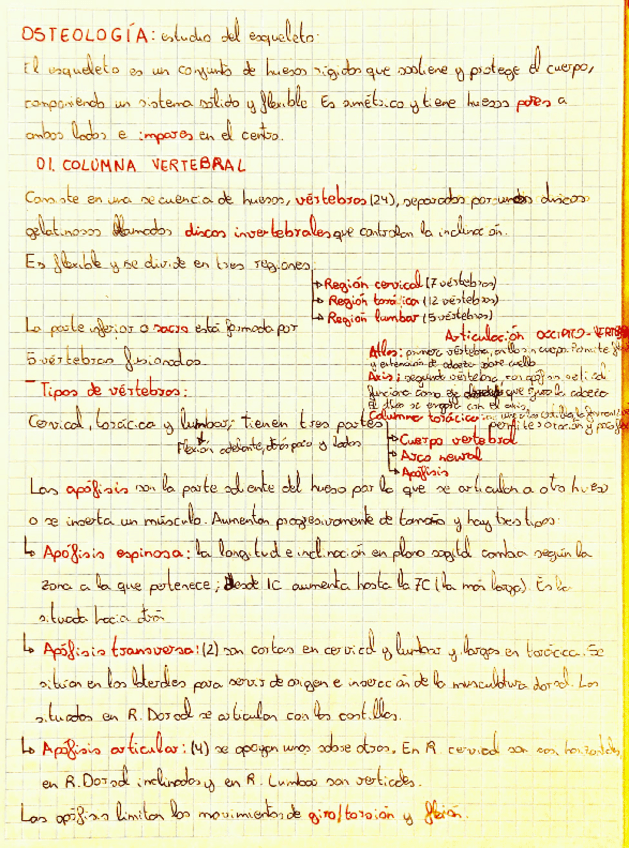 OSTEOLOGÍA: estudio del esqueleto.
El esqueleto es un conjunto de huesos rígidos que sostiene y protege el cuerpo,
componiendo un sistema sólido y flexible. Es simétrico y tiene huesos pares a
ambos lados e impares en el centro.
01. COLUMNA VERTEBRAL
Consiste en una secuencia de huesos, vértebras (24), separados por unos discos
gelatinosos llamados discos invertebrales que controlan la inclinación.
Es flexible y se divide en tres regiones
Región cervical (7 vértebras)
Región torácica (12 vértebras)
Región lumbar (5 vértebras)
La parte inferior o sacro está formada por
5 vértebras fusionadas.
Articulación OCCIPITO-VERTEB
Atlas: primera vértebra, anillo sin cuerpo. Permite
y extensión de cabeza sobre cuello
Axis: segunda vértebra, con apófisis
funciona como eje que gira la cabeza
El atlas se engrana con el axis.
Columna torácica:
permite rotación y
Tipos de vértebras:
Cervical, torácica y lumbar; tienen tres partes
Flexión adelante, atrás y lados
Cuerpo vertebral
Arco neural
Apófisis
Las apófisis son la parte saliente del hueso por la que se articulan a otro hueso
o se inserta un músculo. Aumentan progresivamente de tamaño y hay tres tipos:
Apófisis espinosa: la longitud e inclinación en plano sagital cambia según la
zona a la que pertenece; desde 1C aumenta hasta la 7C (la más larga). Está
situada hacia atrás.
Apófisis transversa: (2) son cortas en cervical y lumbar y largas en torácica. Se
sitúan en los laterales para servir de origen e inserción de la musculatura dorsal. Las
situadas en R. Dorsal se articulan con las costillas.
Apófisis articular: (4) se apoyan unas sobre otras. En R. cervical son casi horizontales,
en R. Dorsal inclinadas y en R. Lumbar son verticales.
Las apófisis limitan los movimientos de giro/torsión y flexión.